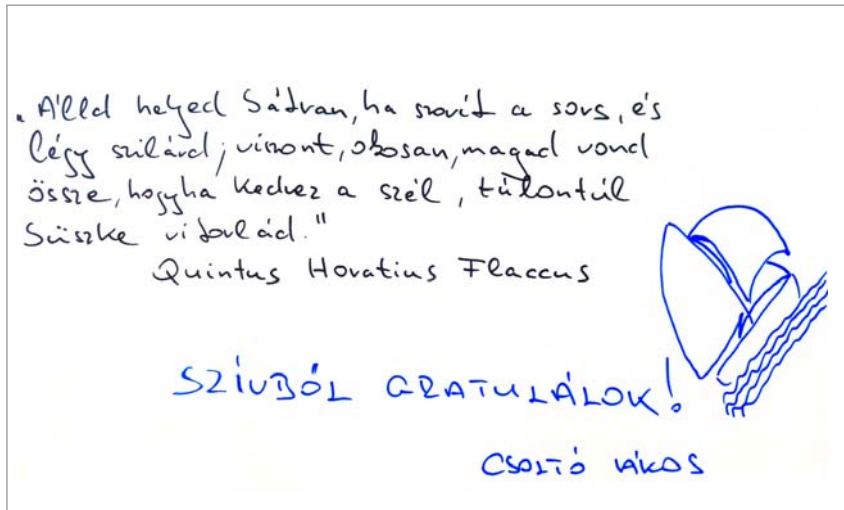 „Álld helyed bátran, ha szorít a sors, és
légy szilárd; viszont, okosan, magad vond
össze, hogyha kedvez a szél, túlontúl
büszke vitorlád."
Quintus Horatius Flaccus
SZÍVBŐL GRATULÁLOK!
CSOLTÓ ÁKOS